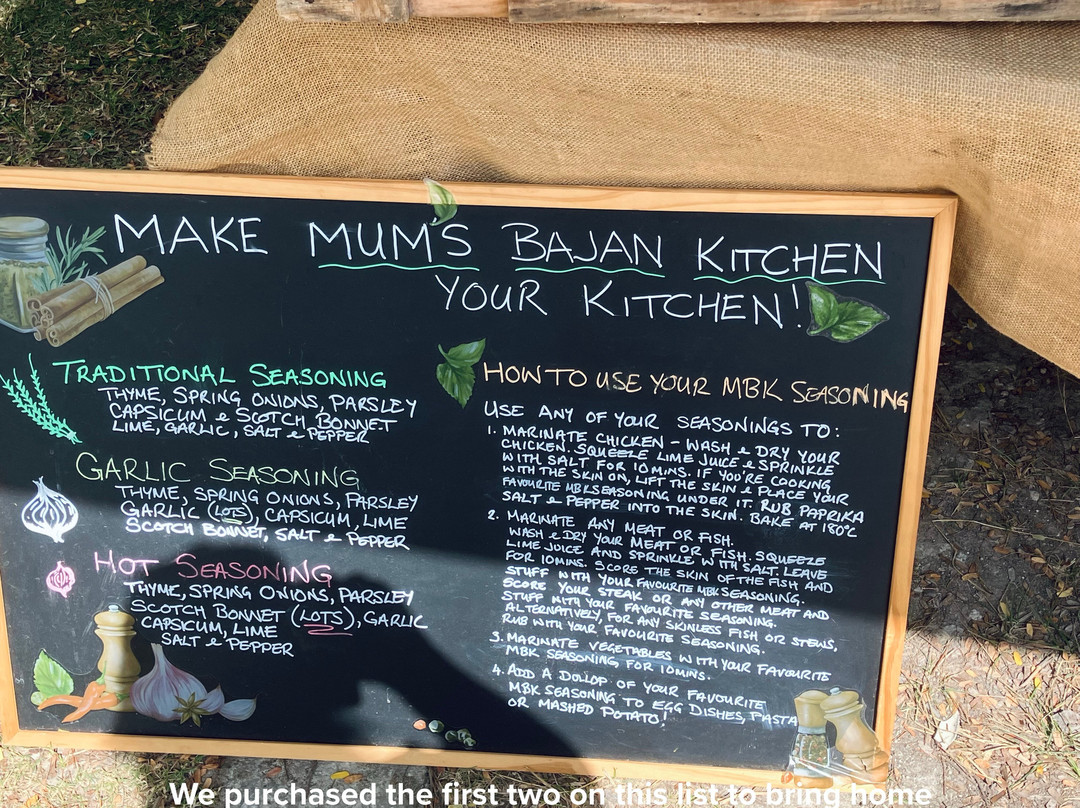 MAKE MUM'S BAJAN KITCHEN
YOUR KITCHEN!
TRADITIONAL SEASONING
THYME, SPRING ONIONS, PARSLEY
CAPSICUM & SCOTCH BONNET
LIME, GARLIC, SALT & PEPPER
GARLIC SEASONING
THYME, SPRING ONIONS, PARSLEY
GARLIC (LOTS), CAPSICUM, LIME
SCOTCH BONNET, SALT & PEPPER
HOT SEASONING
THYME, SPRING ONIONS, PARSLEY
SCOTCH BONNET (LOTS), GARLIC
CAPSICUM, LIME
SALT & PEPPER
HOW TO USE YOUR MBK SEASONING
USE ANY OF YOUR SEASONINGS TO:
1. MARINATE CHICKEN - WASH & DRY YOUR
CHICKEN. SQUEEZE LIME JUICE & SPRINKLE
WITH SALT FOR 10MINS. IF YOU'RE COOKING
WITH THE SKIN ON, LIFT THE SKIN & PLACE YOUR
FAVOURITE MBK SEASONING UNDER IT. RUB PAPRIKA
SALT & PEPPER INTO THE SKIN. BAKE AT 180°C
2. MARINATE ANY MEAT OR FISH.
WASH & DRY YOUR MEAT OR FISH. SQUEEZE
LIME JUICE AND SPRINKLE WITH SALT. LEAVE
FOR 10MINS. SCORE THE SKIN OF THE FISH AND
STUFF WITH YOUR FAVOURITE MBK SEASONING.
SCORE YOUR STEAK OR ANY OTHER MEAT AND
STUFF WITH YOUR FAVOURITE SEASONING.
ALTERNATIVELY, FOR ANY SKINLESS FISH OR STEWS,
RUB WITH YOUR FAVOURITE SEASONING.
3. MARINATE VEGETABLES WITH YOUR FAVOURITE
MBK SEASONING FOR 10MINS.
4. ADD A DOLLOP OF YOUR FAVOURITE
MBK SEASONING TO EGG DISHES, PASTA
OR MASHED POTATO!
We purchased the first two on this list to bring home